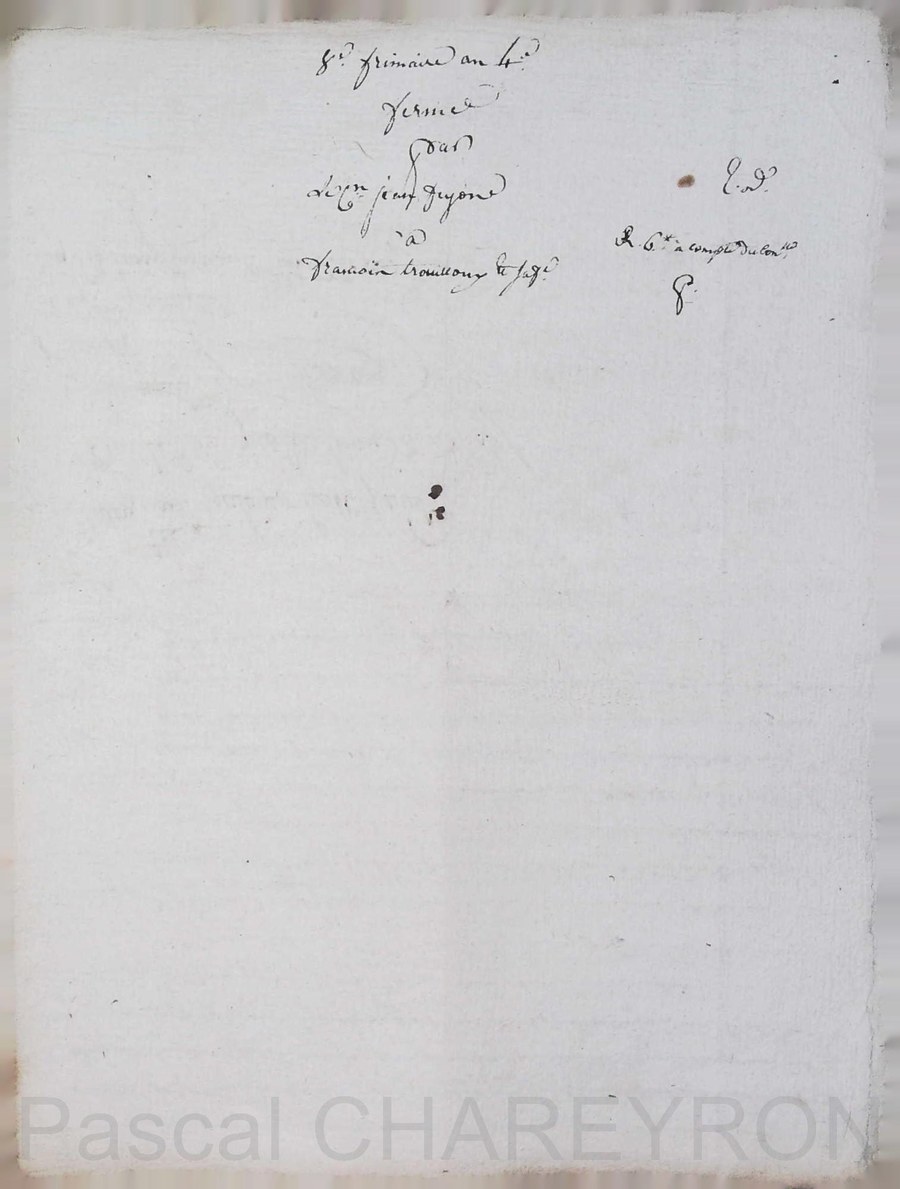 8e. frimaire an 4e.
ferme
par
le cn. jean
à
françois trouilloux et sa fe.
R. 6 # à compte du con
Pascal CHAREYRON